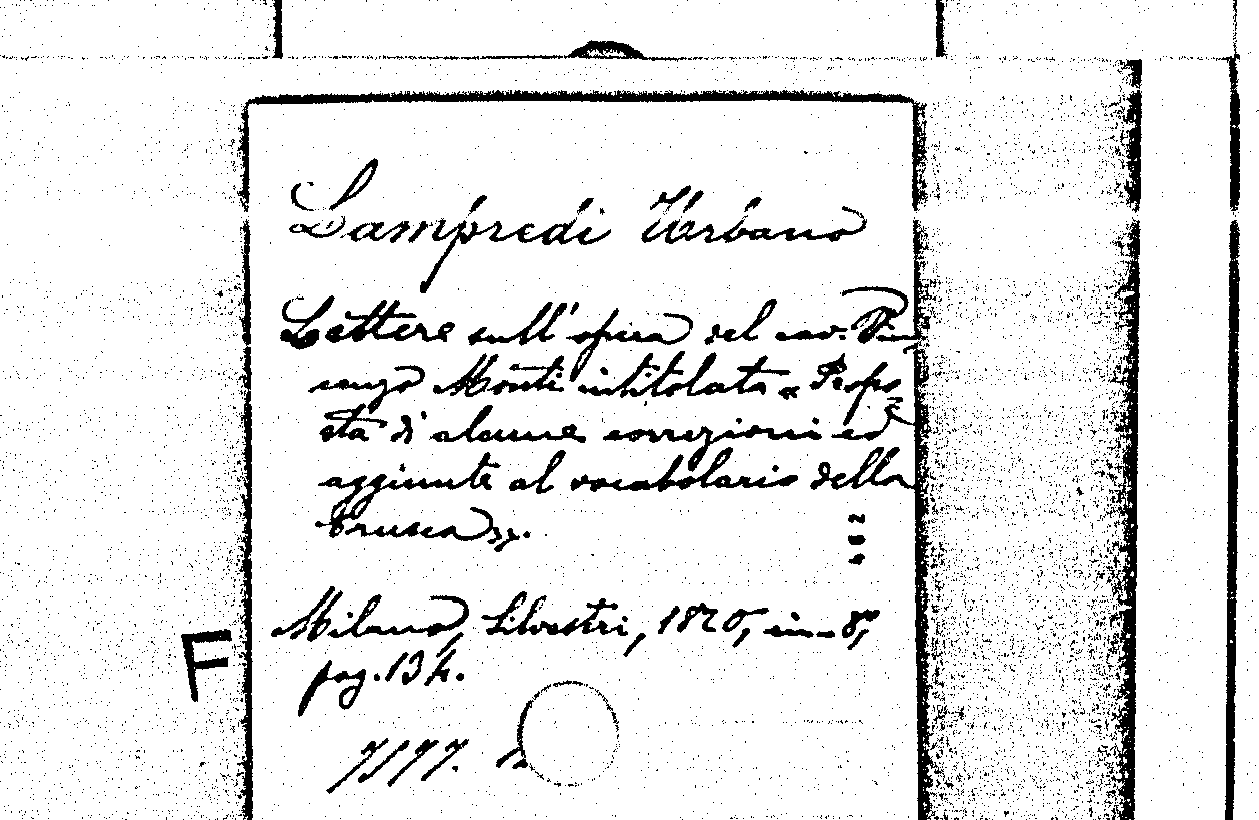 Lampredi Urbano
Lettere sull'opera del cav. Vin
cenzo Monti intitolata « Propo
sta di alcune correzioni ed
aggiunte al vocabolario della
Crusca».
Milano, Silvestri, 1820, in-8º,
pag. 134.
F